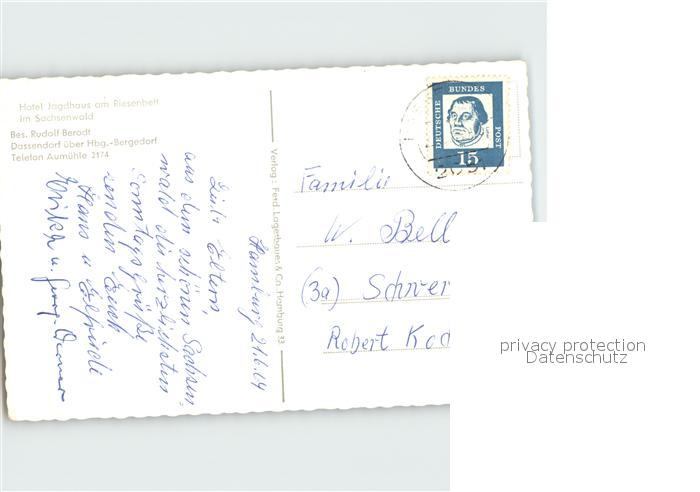 Hotel Jagdhaus am Riesenbett
im Sachsenwald
Bes. Rudolf Berodt
Dassendorf über Hbg.-Bergedorf
Telefon Aumühle 2174
Hamburg 21.6.64
Liebe Eltern,
aus dem schönen Sachsen-
wald die herzlichsten
Sonntagsgrüße
senden Euch
Hans u Elfriede
u. Georg
Verlag: Ferd. Lagerbauer & Co. Hamburg 33
DEUTSCHE BUNDES POST
Luther
15
Familie
W. Bell
(3a) Schwer
Robert Koc
privacy protection
Datenschutz